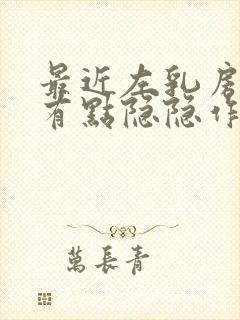 最近左乳房
有點隐隐作
萬長青